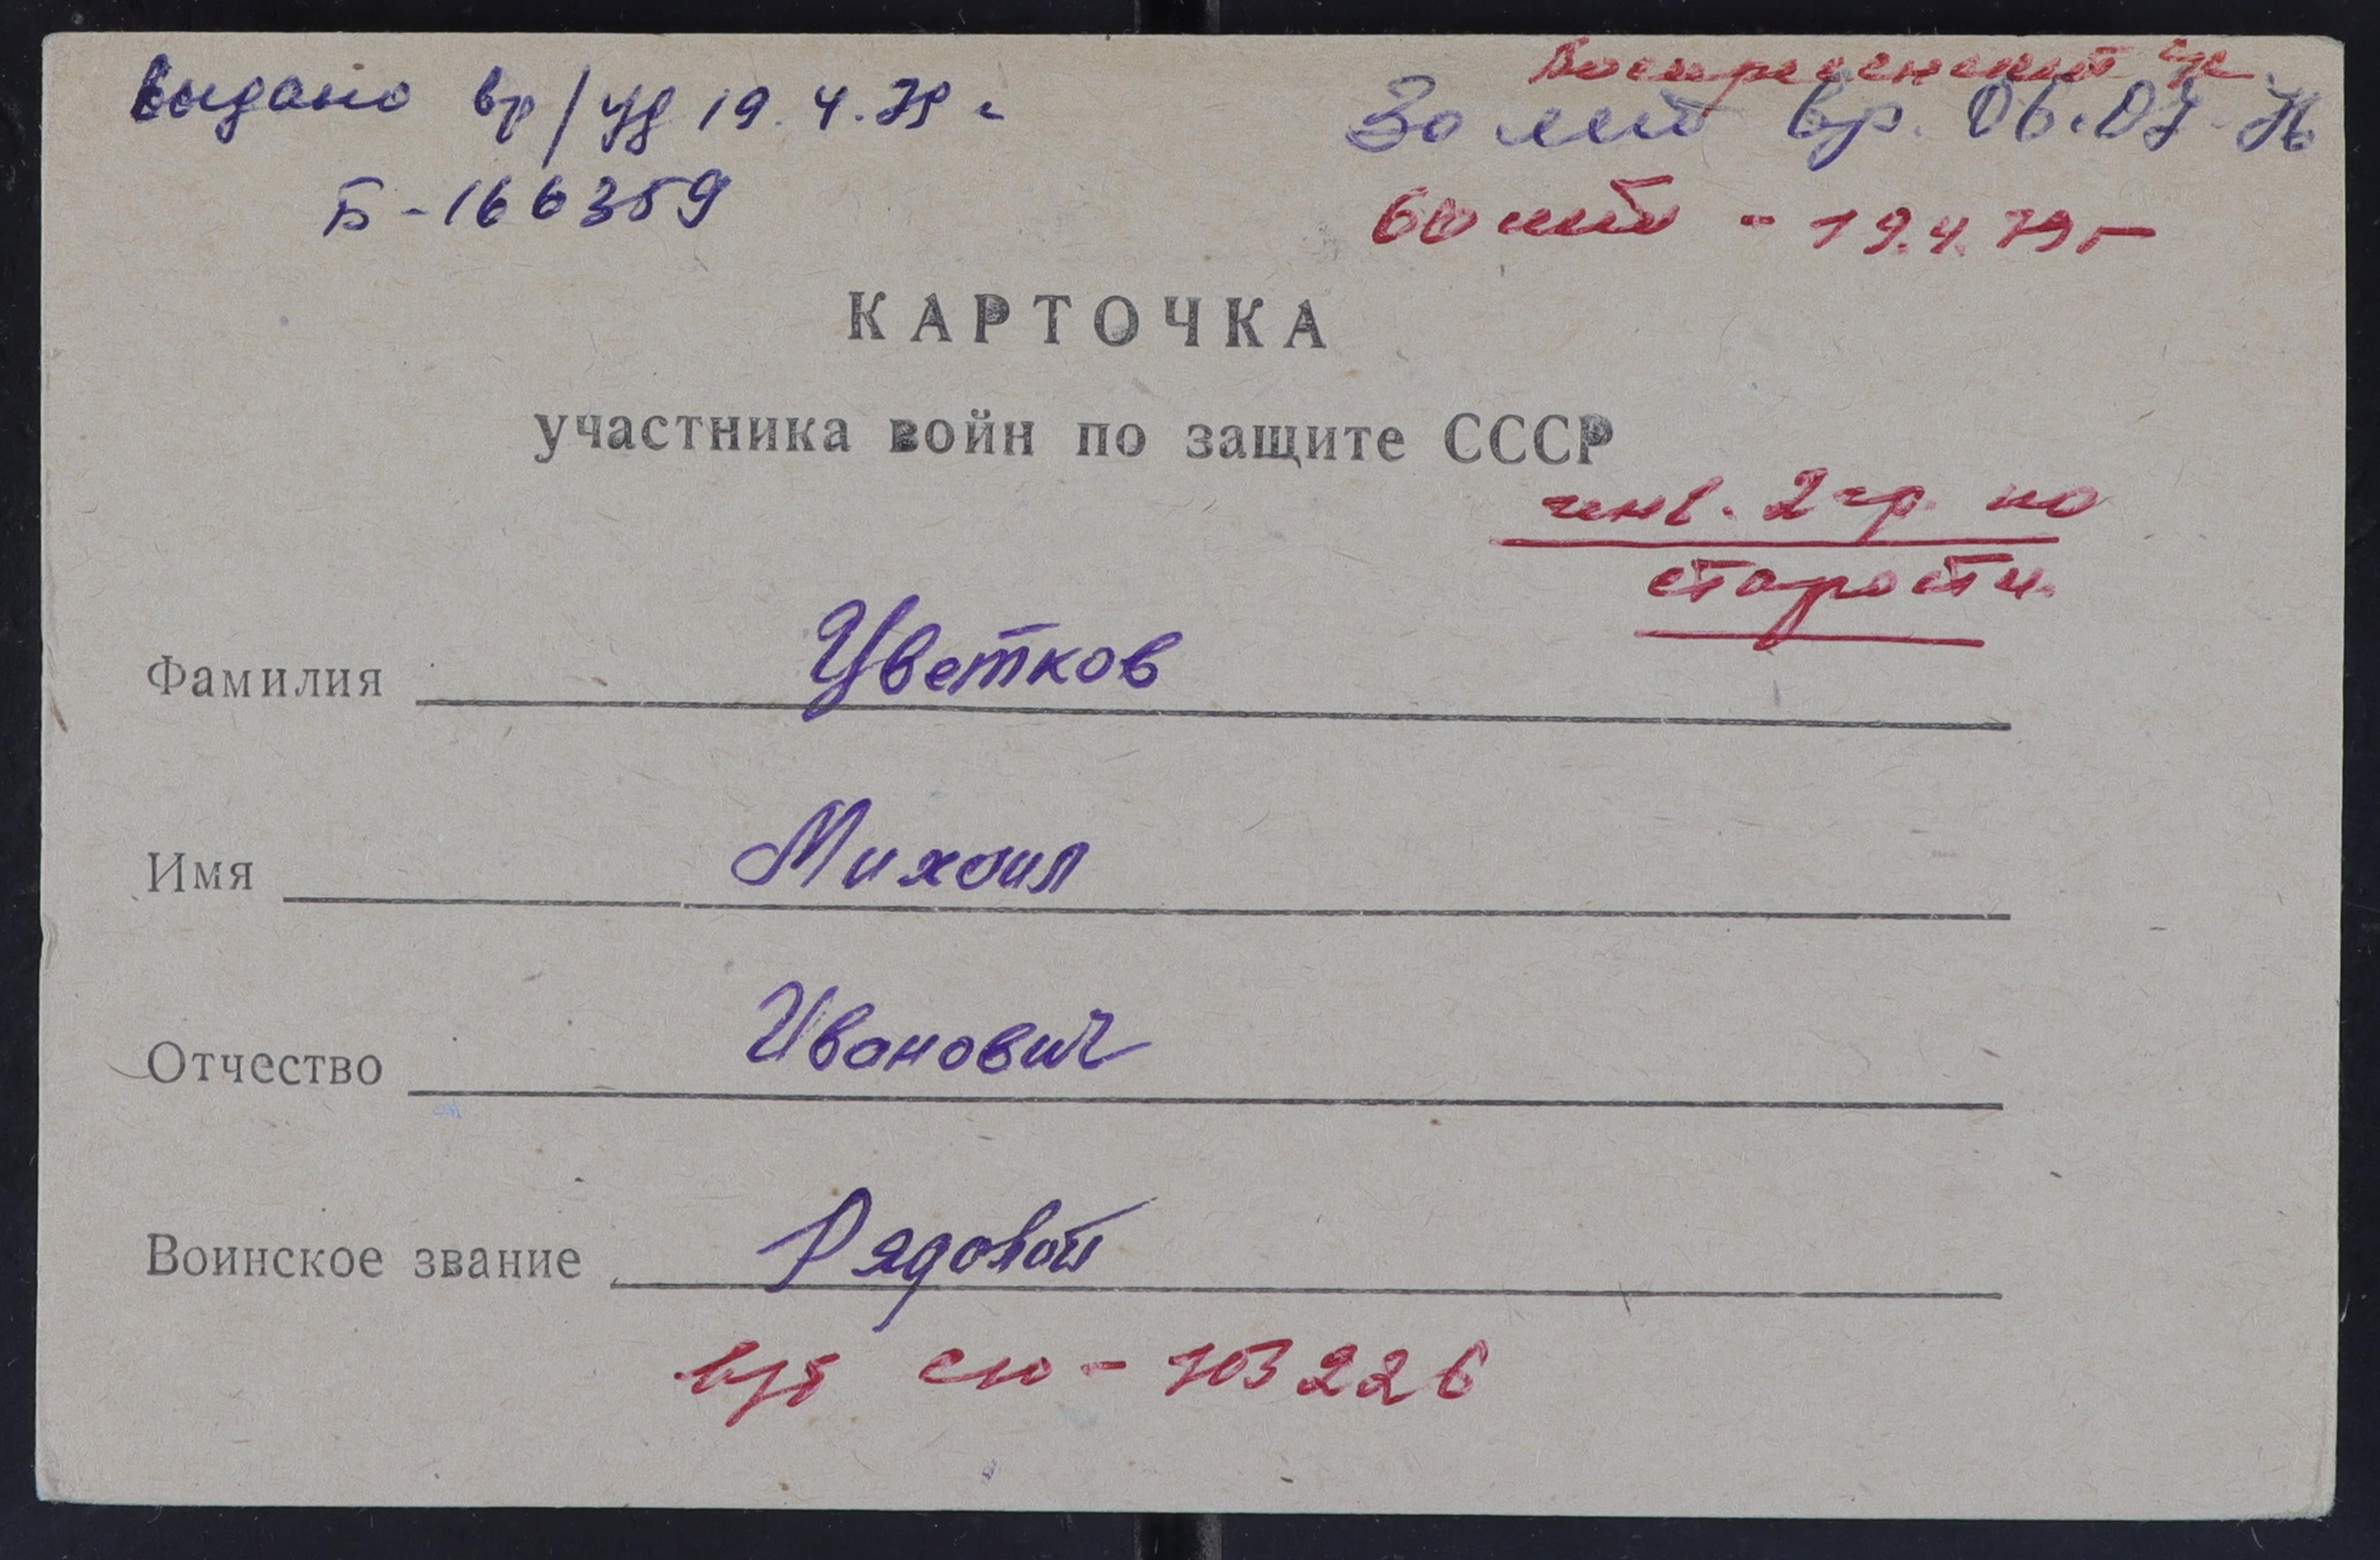 Воскресенский
выдано вр/уд 19.4.79 г
30 лет вр. 06.07.76
Б-166359
60 лет - 19.4.79 г
КАРТОЧКА
участника войн по защите СССР
инв. 2 гр. по
старости.
Фамилия Цветков
Имя Михаил
Отчество Иванович
Воинское звание Рядовой
в/б СЮ - 703226